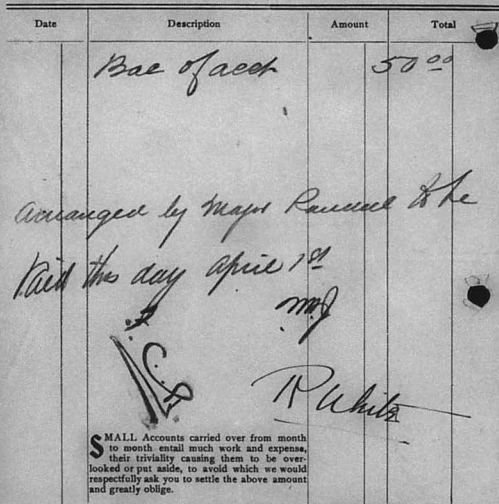 Date Description Amount Total
Bal of acct 50 00
Arranged by Major to be
Paid this day April 1st
R White
SMALL Accounts carried over from month
to month entail much work and expense,
their triviality causing them to be over-
looked or put aside, to avoid which we would
respectfully ask you to settle the above amount
and greatly oblige.